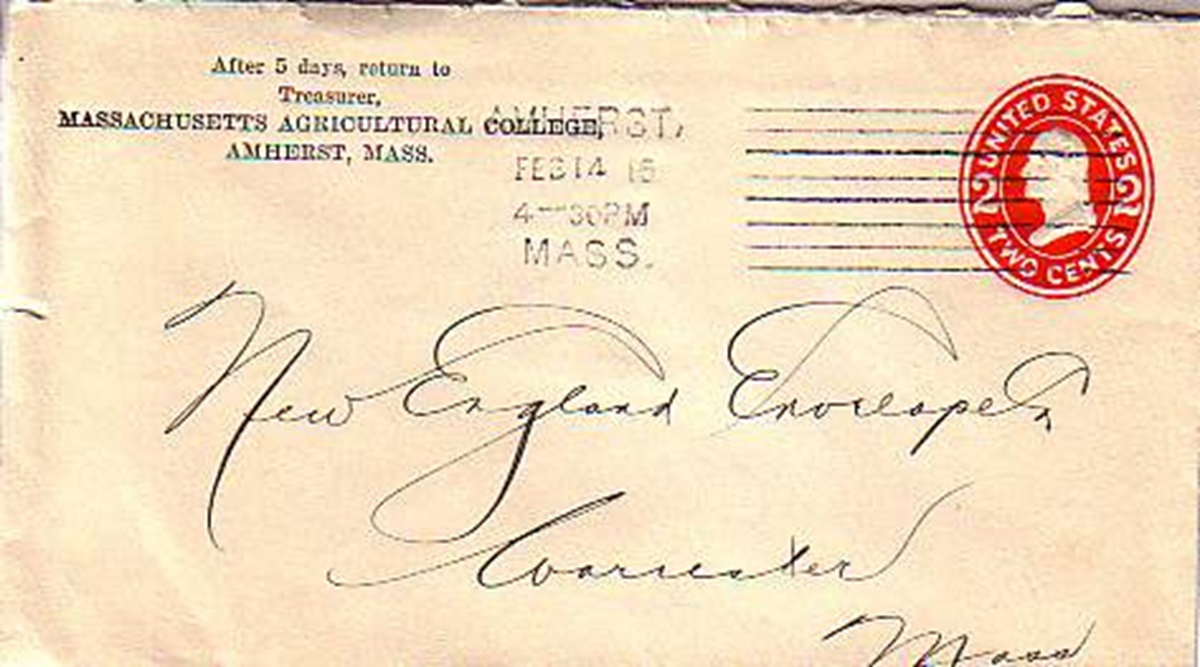 After 5 days, return to
Treasurer,
MASSACHUSETTS AGRICULTURAL COLLEGE,
AMHERST, MASS.
AMHERST,
FEB 14 16
4-30PM
MASS.
UNITED STATES
2 2
TWO CENTS
New England Envelope Co
Worcester
Mass